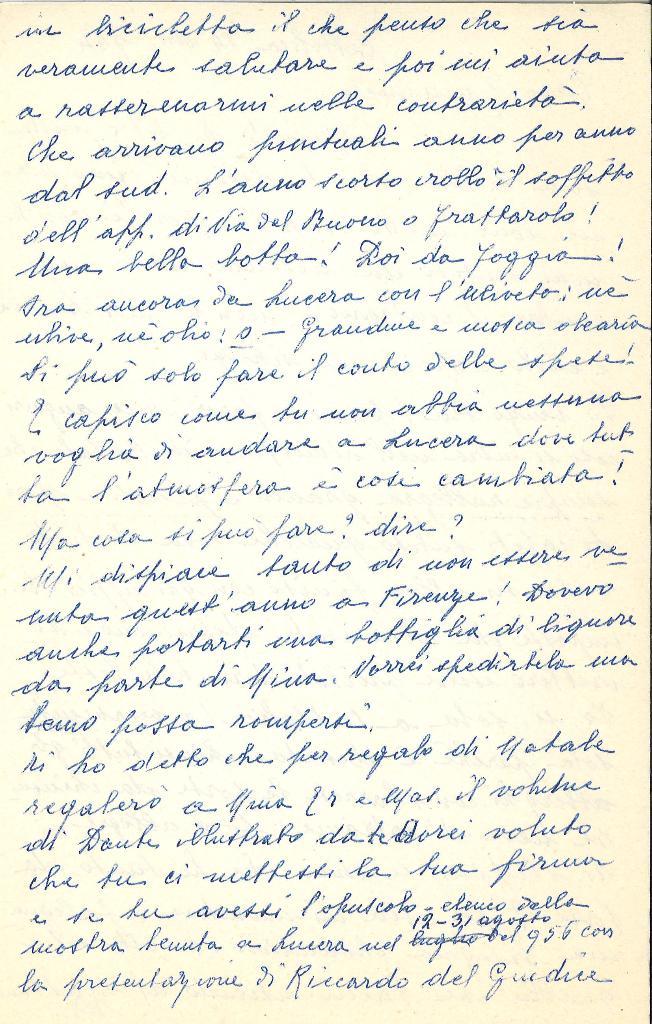 in bicicletta il che penso che sia
veramente salutare e poi mi aiuta
a rasserenarmi nelle contrarietà.
Che arrivano puntuali anno per anno
dal sud. L'anno scorso crollò il soffitto
dell'app. di Via del Buono o Frattarolo!
Una bella botta! Poi da Foggia!
Ora ancora da Lucera con l'uliveto: nè
ulive, nè olio: o - Grandine e mosca olearia
Si può solo fare il conto delle spese!
E capisco come tu non abbia nessuna
voglia di andare a Lucera dove tut
ta l'atmosfera è così cambiata!
Ma cosa si può fare? dire?
Mi dispiace tanto di non essere ve
nuta quest'anno a Firenze! Dovevo
anche portarti una bottiglia di liquore
da parte di Mina. Vorrei spedirtela ma
temo possa rompersi.
Ti ho detto che per regalo di Natale
regalerò a Mina Er e Mas. il volume
di Dante illustrato da te. Vorei voluto
che tu ci mettessi la tua firma
e se tu avessi l'opuscolo - elenco della
12-31 agosto
mostra tenuta a Lucera nel luglio del 956 con
la presentazione di Riccardo del Giudice